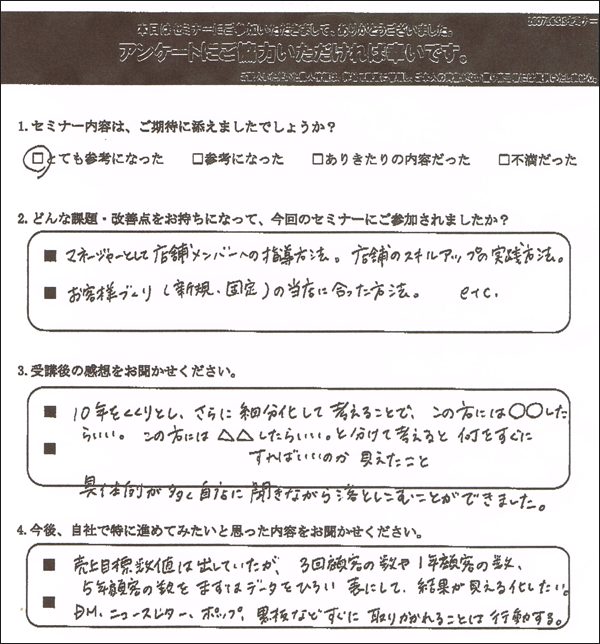 本日はセミナーにご参加いただきまして、ありがとうございました。
アンケートにご協力いただければ幸いです。
1. セミナー内容は、ご期待に添えましたでしょうか?
□とても参考になった □参考になった □ありきたりの内容だった □不満だった
2. どんな課題・改善点をお持ちになって、今回のセミナーにご参加されましたか?
■ マネージャーとして店舗メンバーへの指導方法。店舗のスキルアップの実践方法。
■ お客様づくり(新規、固定)の当店に合った方法。 etc.
3. 受講後の感想をお聞かせください。
■ 10年をくくりとし、さらに細分化して考えることで、この方には○○した
らいい。この方には△△したらいい。と分けて考えると何をすぐに
■ すればいいのか見えたこと
具体例が多く自店に聞きながら落としこむことができました。
4. 今後、自社で特に進めてみたいと思った内容をお聞かせください。
■ 売上目標数値は出していたが、3回顧客の数や1年顧客の数、
5年顧客の数をまずはデータをひろい表にして、結果が見える化したい。
■ DM、ニュースレター、ポップ、黒板などすぐに取りかかれることは行動する。